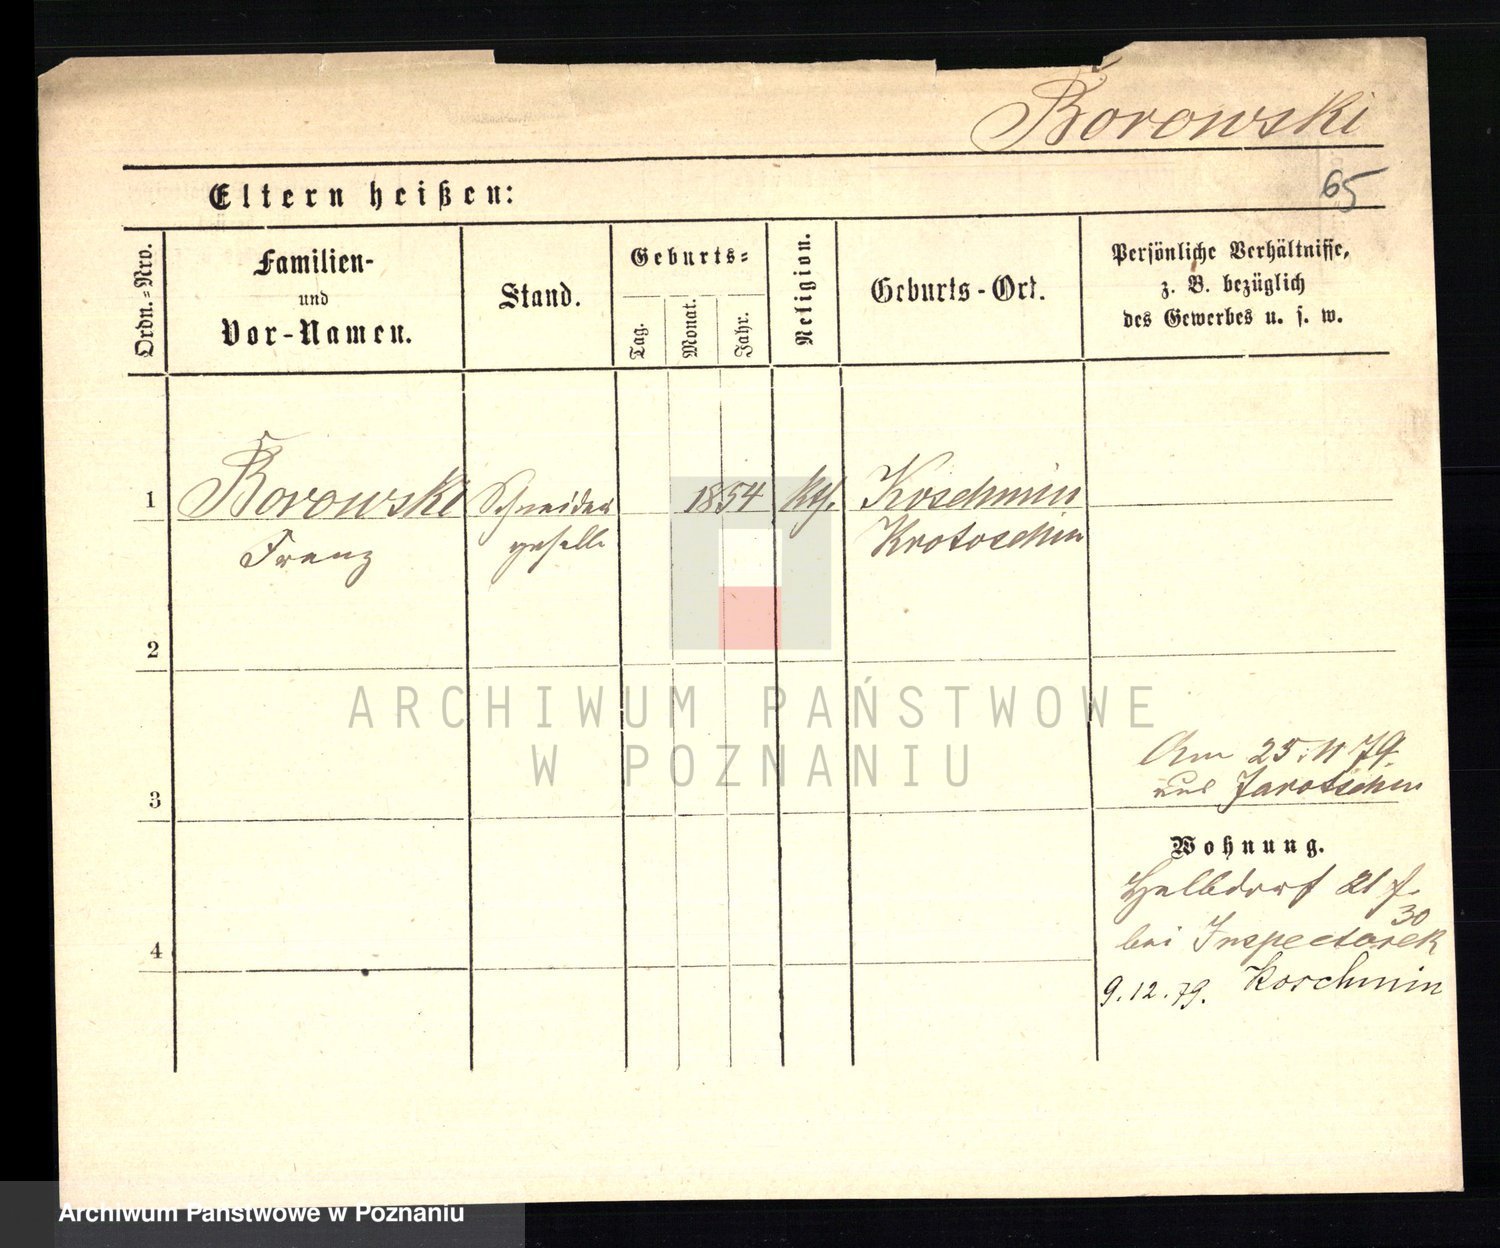 Borowski
65
Eltern heißen:
Ordn.-Nro.
Familien-
und
Vor-Namen.
Stand.
Geburts-
Tag.
Monat.
Jahr.
Religion.
Geburts-Ort.
Persönliche Verhältnisse,
z. B. bezüglich
des Gewerbes u. s. w.
1
Borowski
Franz
Schneider
geselle
1854
kth.
Koschmin
Krotoschin
2
3
Am 25.11 79.
aus Jarotschin
Wohnung.
Halbdorf 21
30
bei
4
9.12.79. Koschmin
ARCHIWUM PAŃSTWOWE
W POZNANIU
Archiwum Państwowe w Poznaniu